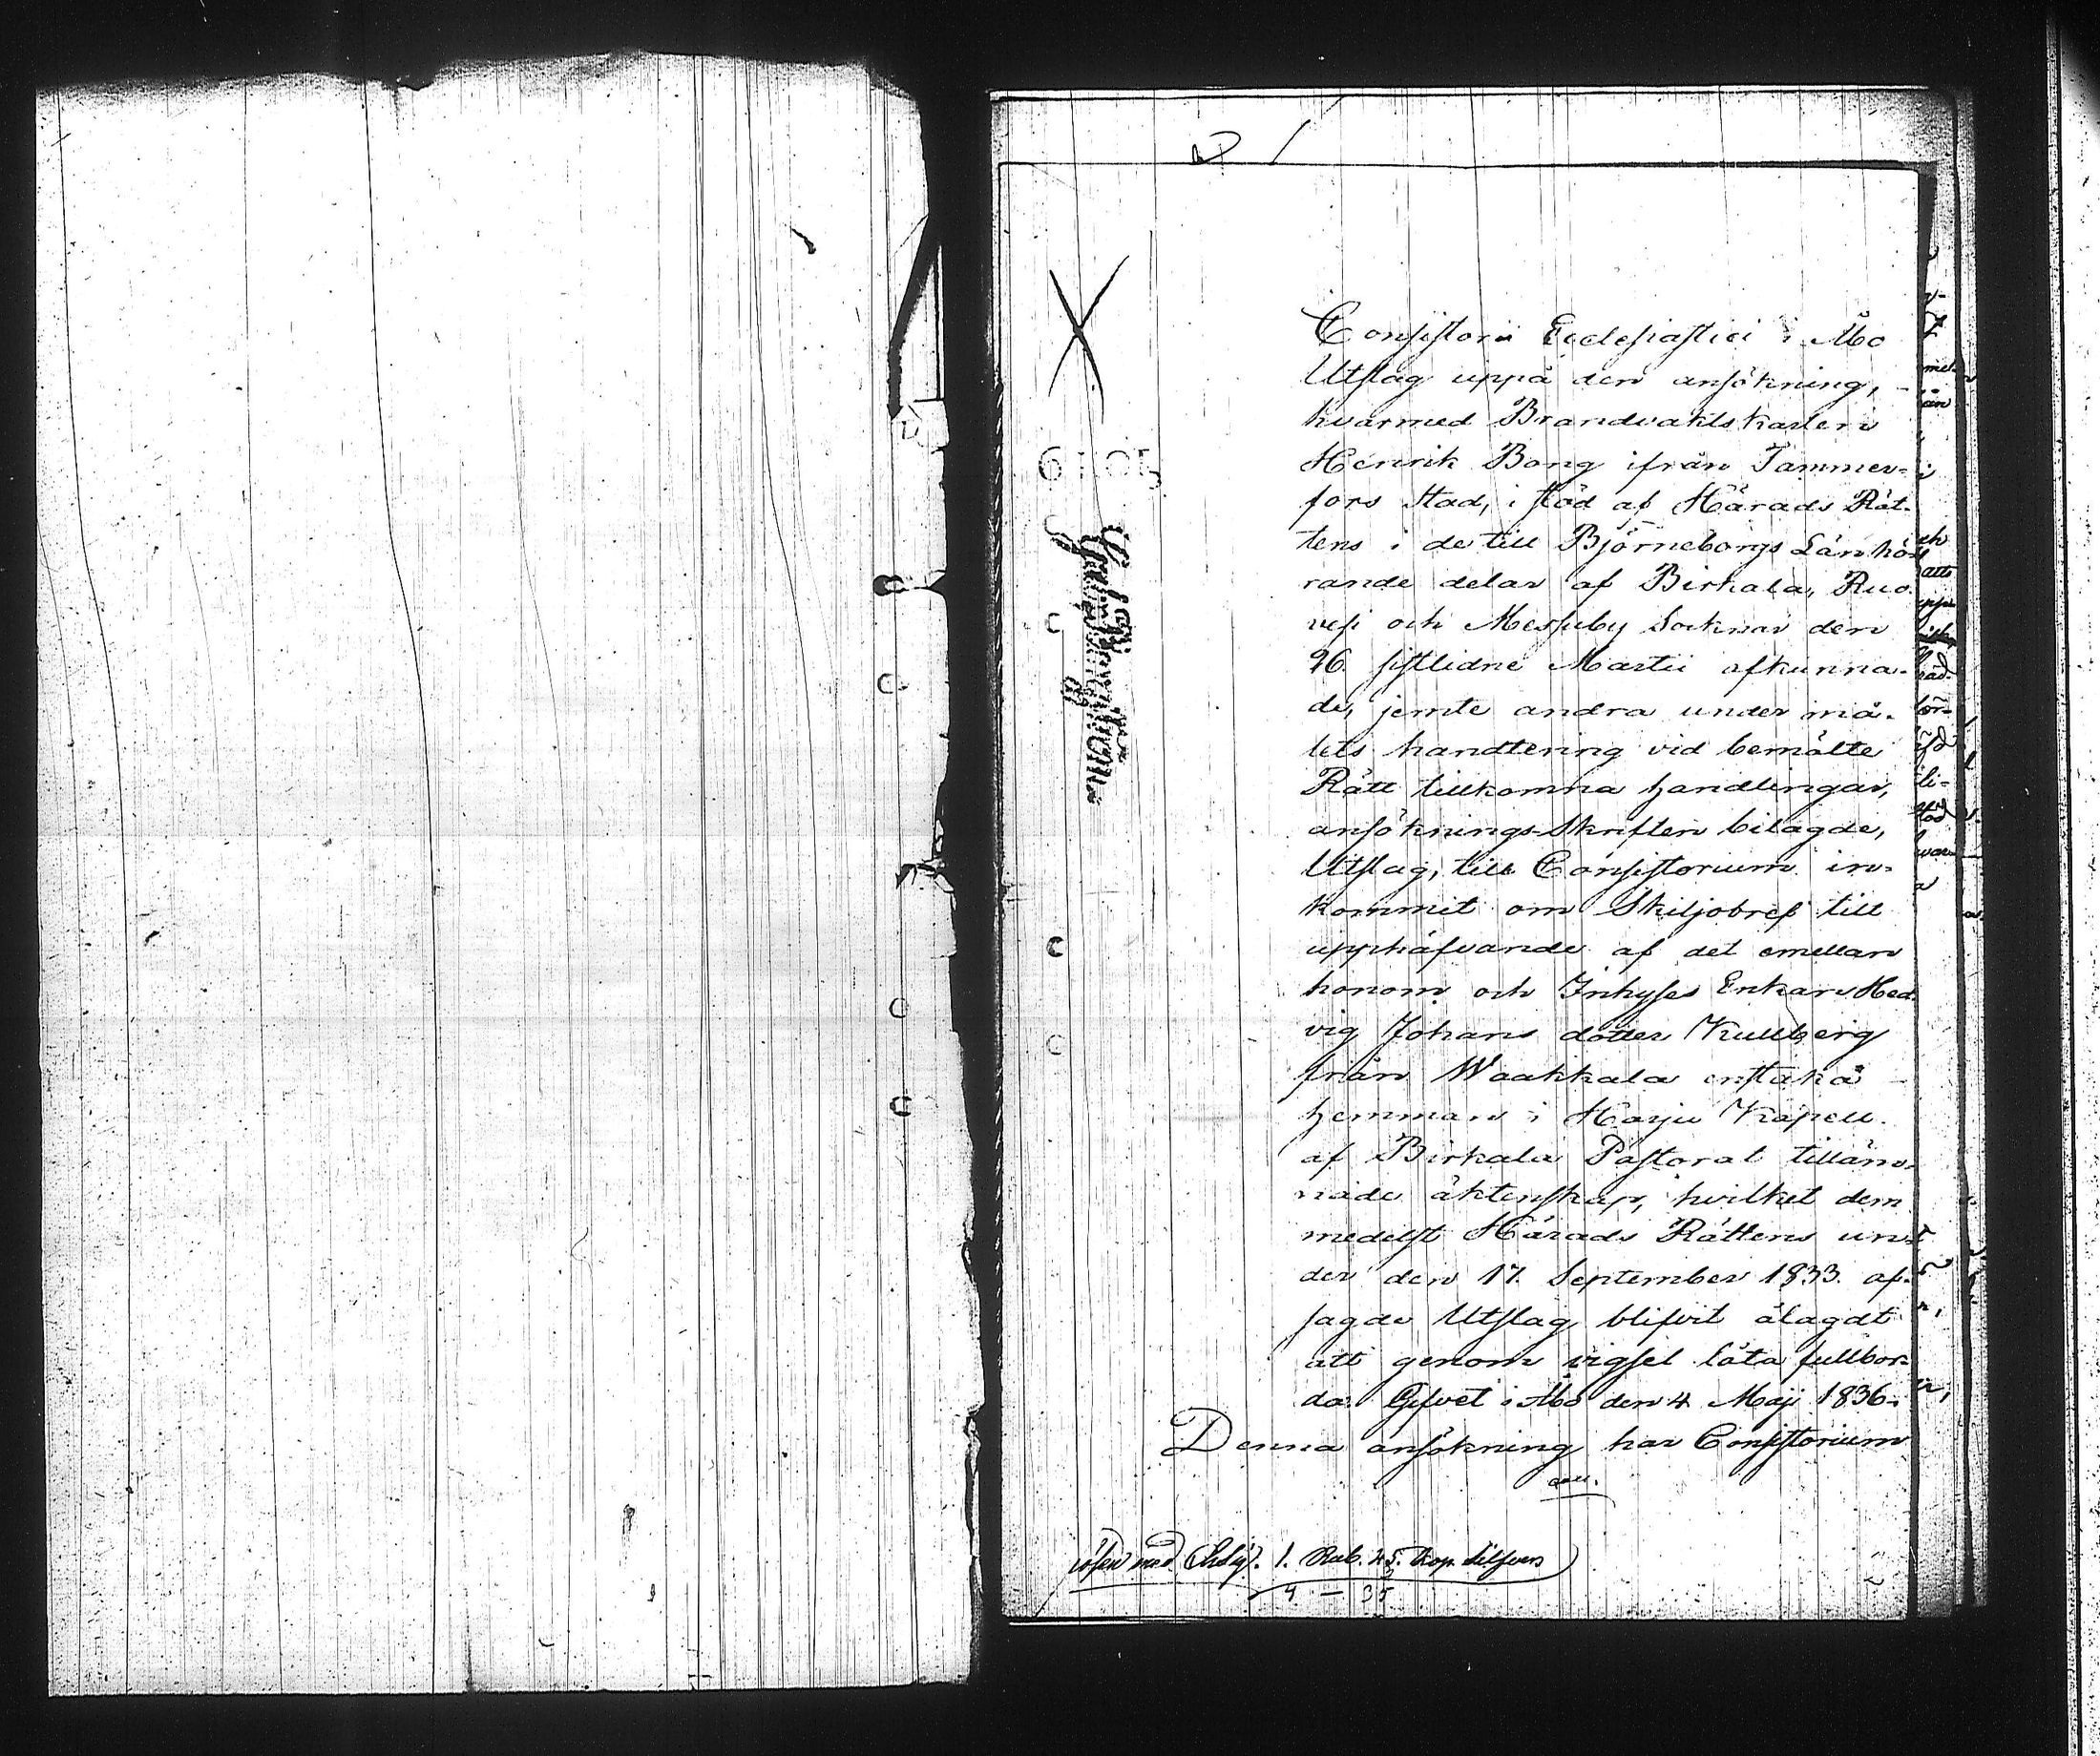 Consistorii Ecclesiastici i Åbo
Utslag uppå den ansökning,
hvarmed Brandvaktskarlen
Henrik Bong ifrån Tammer-
fors Stad, i stöd af Härads Rät-
tens i de till Björneborgs Län hö-
rande delar af Birkala, Ruo-
vesi och Messuby Socknar den
26 sistlidne Martii afkunna-
de, jemte andra under må-
lets handtering vid bemälte
Rätt tillkomna handlingar,
ansöknings-Skriften bilagde,
Utslag, till Consistorium in-
kommit om Skiljobref till
upphäfvande af det emellan
honom och Inhyses Enkan Hed-
vig Johans dotter Kullberg
från Waakkala enstaka
hemman i Harju Kapell
af Birkala Pastorat tillän-
nade äktenskap, hvilket dem
medelst Härads Rättens un-
der den 17. September 1833. af-
sagde Utslag blifvit ålagdt
att genom vigsel låta fullbor-
da. Gifvet i Åbo den 4 Maji 1836.
Denna ansökning har Consistorium
lösen med 1. Rub. 45. Kop. Silfver
4 — 35